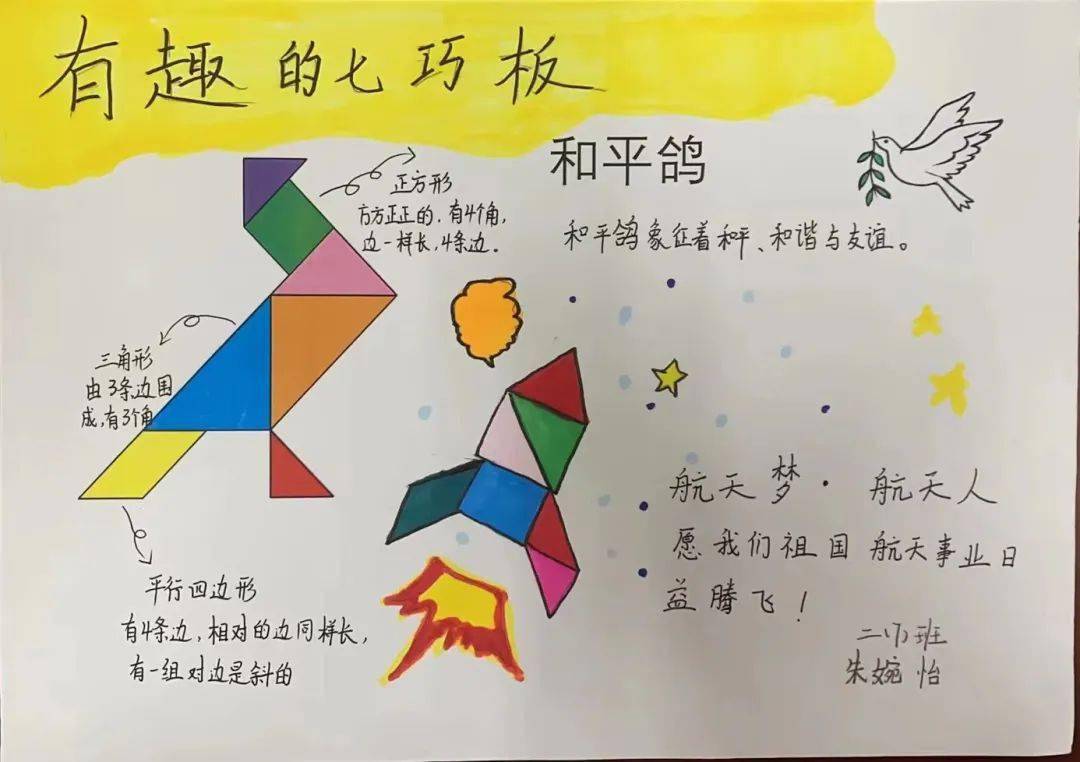 有趣的七巧板
和平鸽
和平鸽象征着和平、和谐与友谊。
正方形
方方正正的，有4个角，
边一样长，4条边。
三角形
由3条边围
成，有3个角
平行四边形
有4条边，相对的边同样长，
有一组对边是斜的
航天梦·航天人
愿我们祖国航天事业日
益腾飞！
二(7)班
朱婉怡